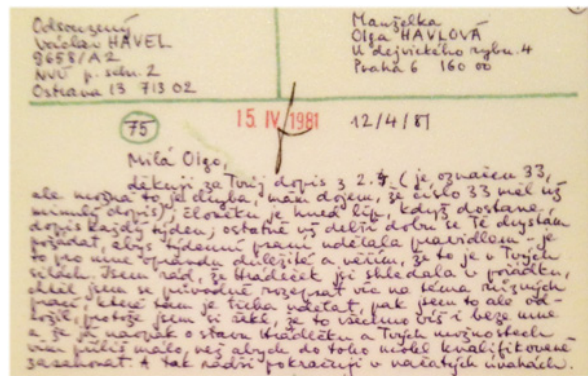 Odsouzený
Václav HAVEL
9658/A2
NVÚ p. schr. 2
Ostrava 13 713 02
Manželka
Olga HAVLOVÁ
U dejvického rybn. 4
Praha 6 160 00
75
15. IV. 1981
12/4/81
Milá Olgo,
děkuji za Tvůj dopis z 2.4. (je označen 33,
ale možná to je chyba, mám dojem, že číslo 33 měl už
minulý dopis); člověku je hned líp, když dostane
dopis každý týden; ostatně už delší dobu se Tě chystám
požádat, abys týdenní psaní udělala pravidlem - je
to pro mne opravdu důležité a věřím, že to je v Tvých
silách. Jsem rád, že Hrádeček jsi shledala v pořádku,
chtěl jsem se původně rozepsat více na téma různých
prací, které tam je třeba udělat, pak jsem to ale od-
ložil, protože jsem si řekl, že to všechno víš i beze mne
a že já naopak o stavu Hrádečku a Tvých možnostech
vím příliš málo, než abych do toho mohl kvalifikovaně
zasahovat. A tak radši pokračuji v načatých úvahách.